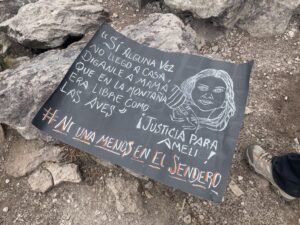 "Si alguna vez
no llego a casa
díganle a mamá
que en la montaña
era libre como
las aves"
¡Justicia para
Meli!
#Ni una menos en el sendero